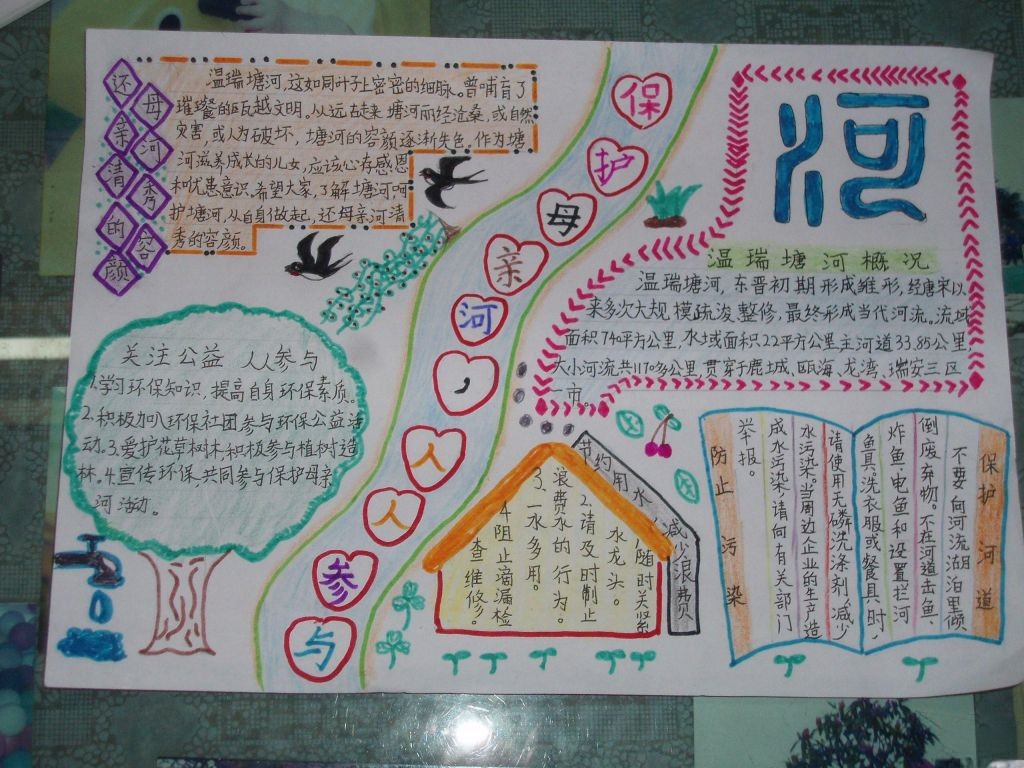 还母亲河清秀的容颜
温瑞塘河,这如同叶子上密密的细脉。曾哺育了
璀璨的瓯越文明。从远古走来,塘河历经沧桑,或自然
灾害,或人为破坏,塘河的容颜逐渐失色,作为塘
河滋养成长的儿女,应该心存感恩
和忧患意识。希望大家,了解塘河,呵
护塘河,从自身做起,还母亲河清
秀的容颜。
保护母亲河,人人参与
河
温瑞塘河概况
温瑞塘河,东晋初期形成雏形,经唐宋以
来多次大规模疏浚整修,最终形成当代河流。流域
面积740平方公里,水域面积22平方公里主河道33.85公里,
大小河流共1170多公里,贯穿于鹿城、瓯海、龙湾、瑞安三区
一市
关注公益 人人参与
1.学习环保知识,提高自身环保素质。
2.积极加入环保社团参与环保公益活
动。3.爱护花草树林,积极参与植树造
林。4.宣传环保,共同参与保护母亲
河活动。
节约用水,减少浪费
1.随时关紧
水龙头。
2.请及时制止
浪费水的行为。
3.一水多用。
4.阻止滴漏检
查维修。
保护河道
不要向河流湖泊里倾
倒废弃物。不在河道击鱼、
炸鱼、电鱼和设置拦河
鱼具。洗衣服或餐具时,
请使用无磷洗涤剂,减少
水污染。当周边企业的生产造
成水污染,请向有关部门
举报。
防止污染